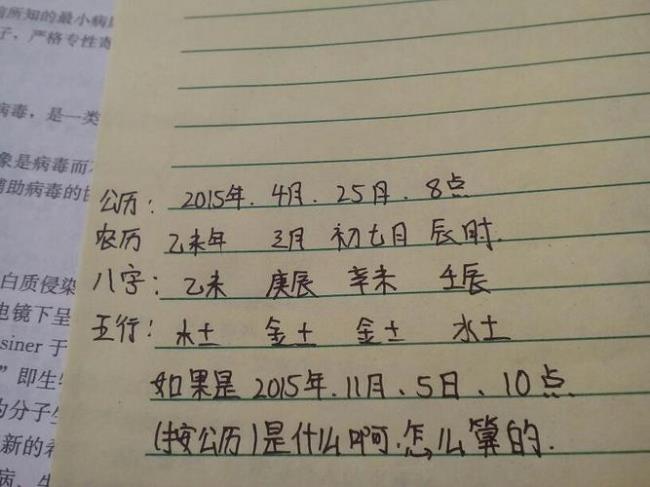 所知的最小病
子，严格专性寄
病毒，是一类
象是病毒而
辅助病毒的
白质侵染
电镜下呈
siner 于
”即生
为分子生
新的
病、生
公历：2015年.4月.25日.8点
农历 乙未年 三月 初七日 辰时.
八字：乙未 庚辰 辛未 壬辰
五行：木土 金土 金土 水土
如果是2015年.11月、5日、10点
(按公历)是什么啊.怎么算的.